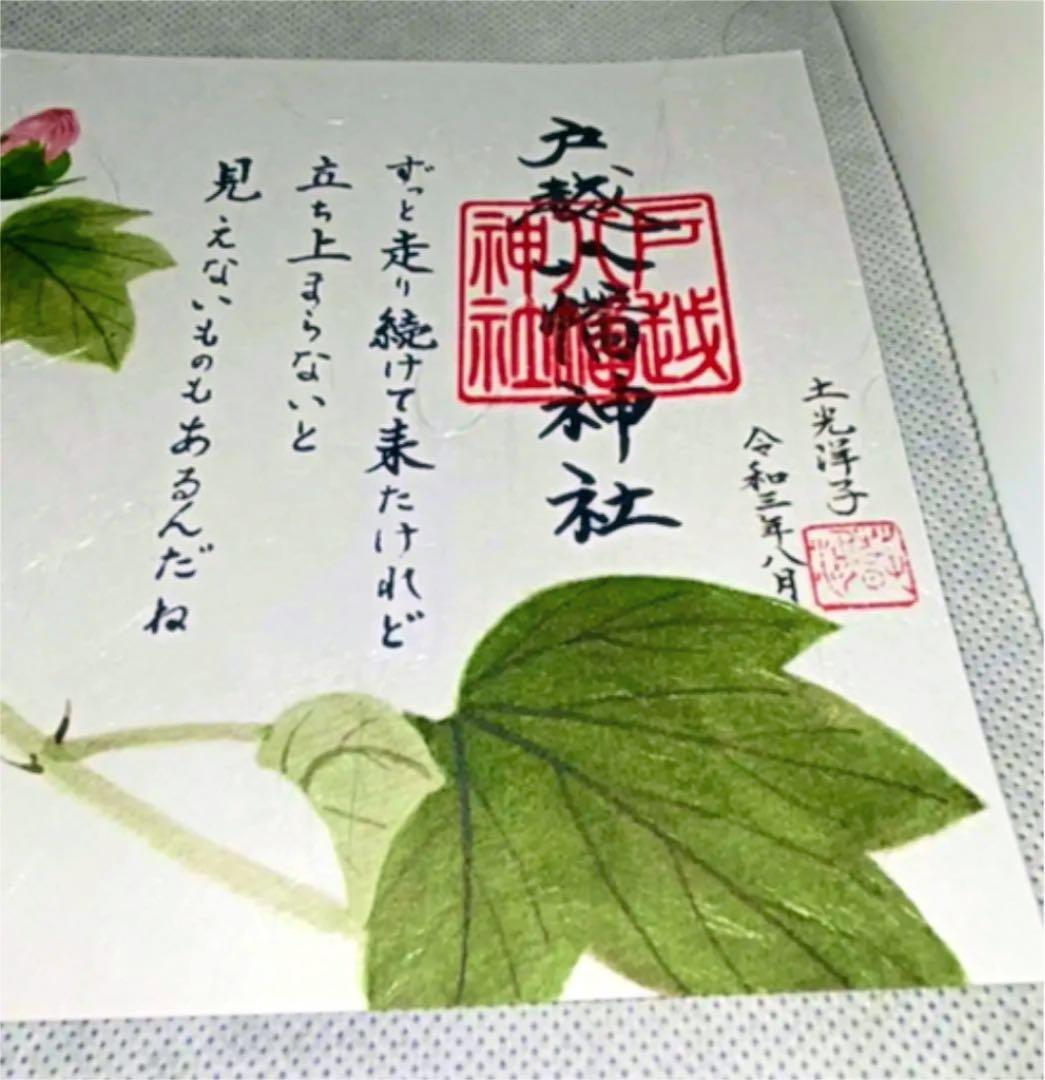 土光洋子
令和三年八月
戸越八幡神社
戸越
八幡
神社
ずっと走り続けて来たけれど
立ち上まらないと
見えないものもあるんだね